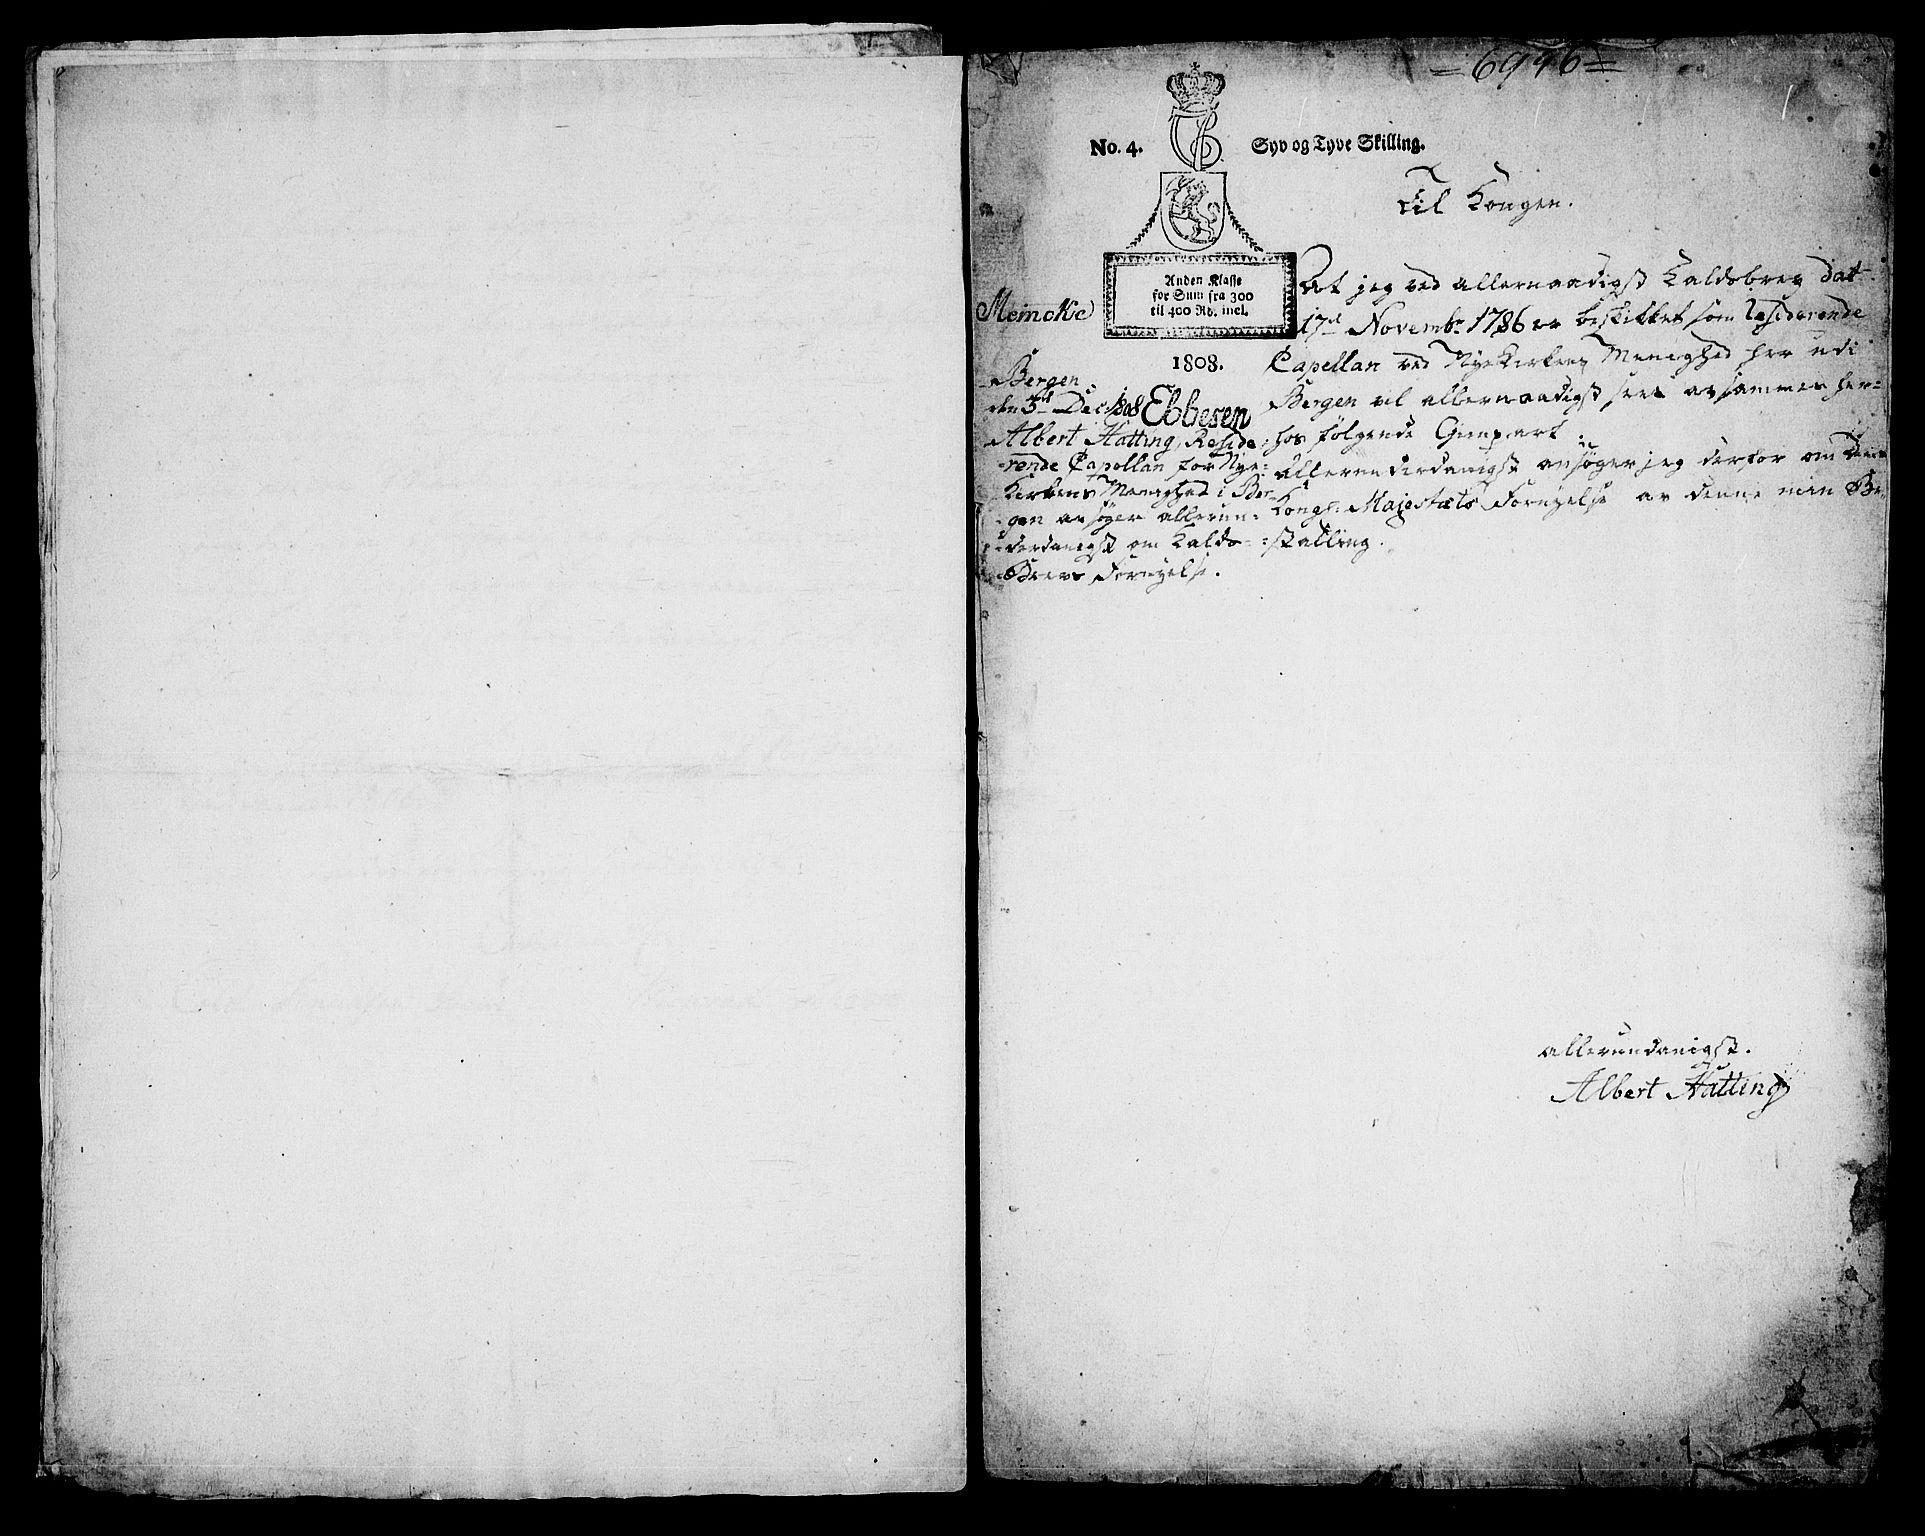 =6996=
No. 4. Syv og Tyve Skilling.
Til Kongen.
Anden Klasse
for Sum fra 300
til 400 Rd. incl.
1808.
Meincke
Bergen
den 3d Dec: 1808 Ebbesen
Albert Hatting, Reside-
rende Capellan for Nye-
Kirkens Menighed i Ber-
gen ansøger allerun-
derdanigst om Kalds-
Brevs Fornyelse.
At jeg ved allernaadigst Kaldsbrev dat
17d Novembr 1786 er beskikket som Residerende
Capellan ved Nyekirkens Menighed her udi
Bergen vil allernaadigst sees av sammes her-
hos følgende Gienpart.
Allerunderdanigst ansøger jeg derfor om Deres
Kongl: Majestæts Fornyelse av denne min Be-
stalling.
allerundanigst.
Albert Hatting